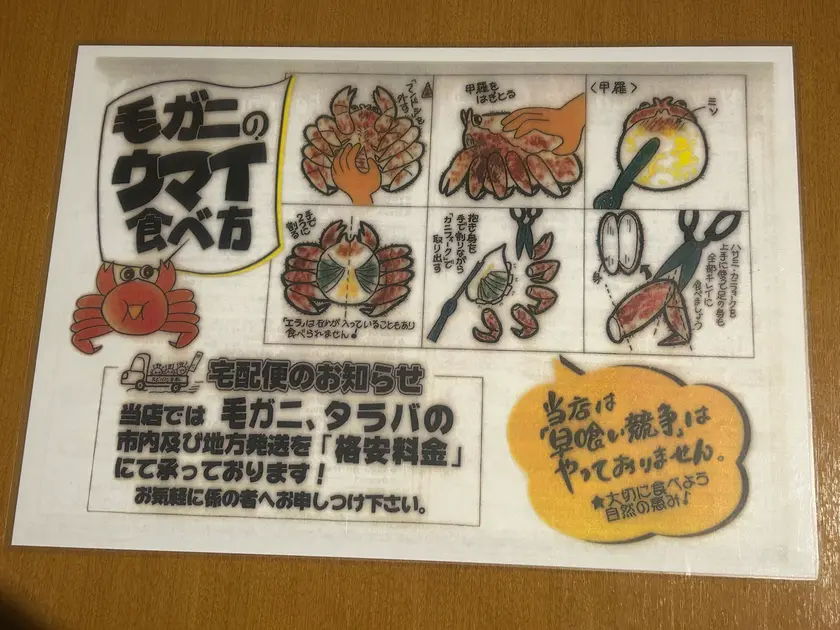 毛ガニの
ウマイ
食べ方
外す
甲羅を
はぎとる
〈甲羅〉
ミソ
手で
2つに
割る
「エラ」は砂が入っていることもあり
食べられません!
抱き身を
手で割りながら
「カニフォーク」で
取り出す
ハサミ・カニフォークを
上手に使って足の身も
全部キレイに
食べましょう
宅配便のお知らせ
当店では 毛ガニ、タラバの
市内及び地方発送を「格安料金」
にて承っております!
お気軽に係の者へお申しつけ下さい。
当店は
「早喰い競争」は
やってありません。
★大切に食べよう
自然の恵み♪